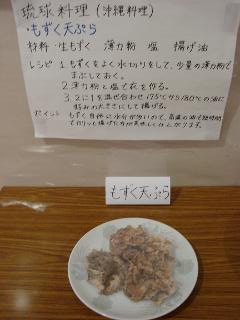 琉球料理(沖縄料理)
・もずく天ぷら
材料・生もずく 薄力粉 塩 揚げ油
レシピ 1.もずくをよく水切りをして、少量の薄力粉で
まぶしておく。
2.薄力粉と塩で衣を作る。
3.2に1を混ぜ合わせ175℃から180℃の油に
好みの大きさにして揚げる。
ポイント もずく自体に水分が多いので、高温の油で短時間
でカリッと揚げた方が美味しく仕上がります。
もずく天ぷら